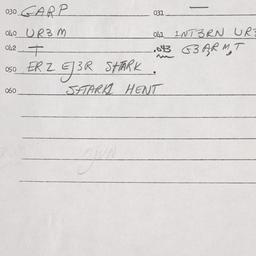 030 GARP 031 —
040 UR3 M 041 INT3RN UR3
042 † .043 G3A,R M,T
050 ER Z EJ3R STARK.
060 STARK HENT